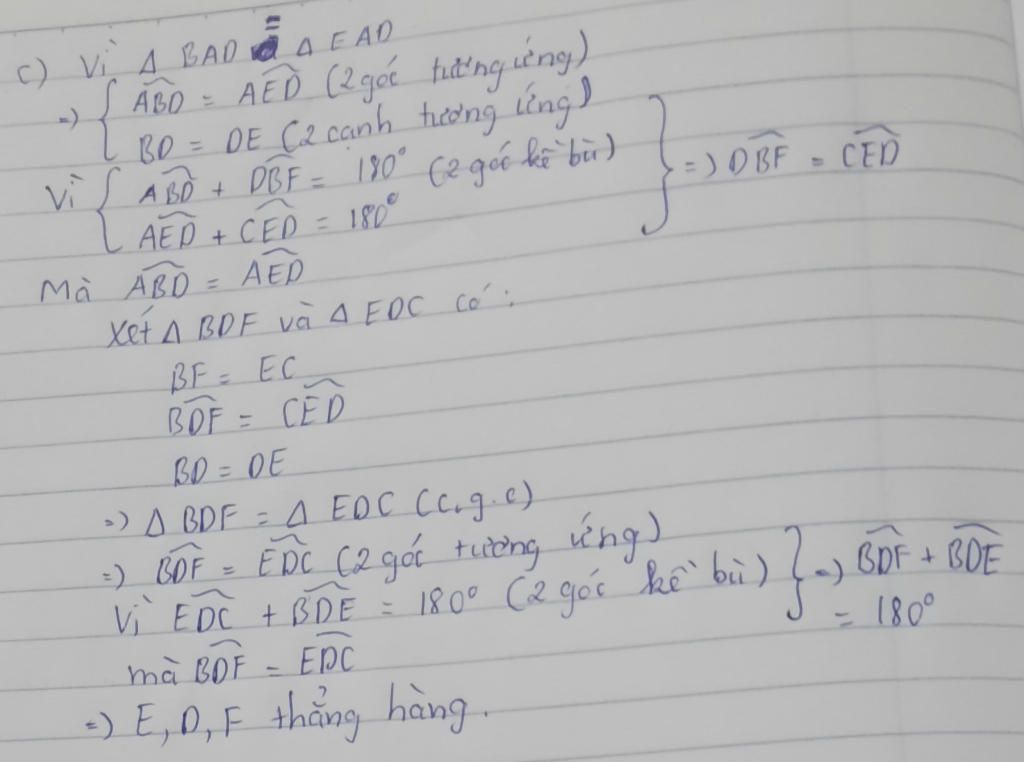 c) Vì Δ BAD = Δ EAD
=> { ABD = AED (2 góc tương ứng)
BD = DE (2 cạnh tương ứng)
Vì { ABD + DBF = 180° (2 góc kề bù) } => DBF = CED
AED + CED = 180°
Mà ABD = AED
Xét Δ BDF và Δ EDC có:
BF = EC
BDF = CED
BD = DE
=> Δ BDF = Δ EDC (c.g.c)
=> BDF = EDC (2 góc tương ứng)
Vì EDC + BDE = 180° (2 góc kề bù) } => BDF + BDE
= 180°
mà BDF = EDC
=> E, D, F thẳng hàng.